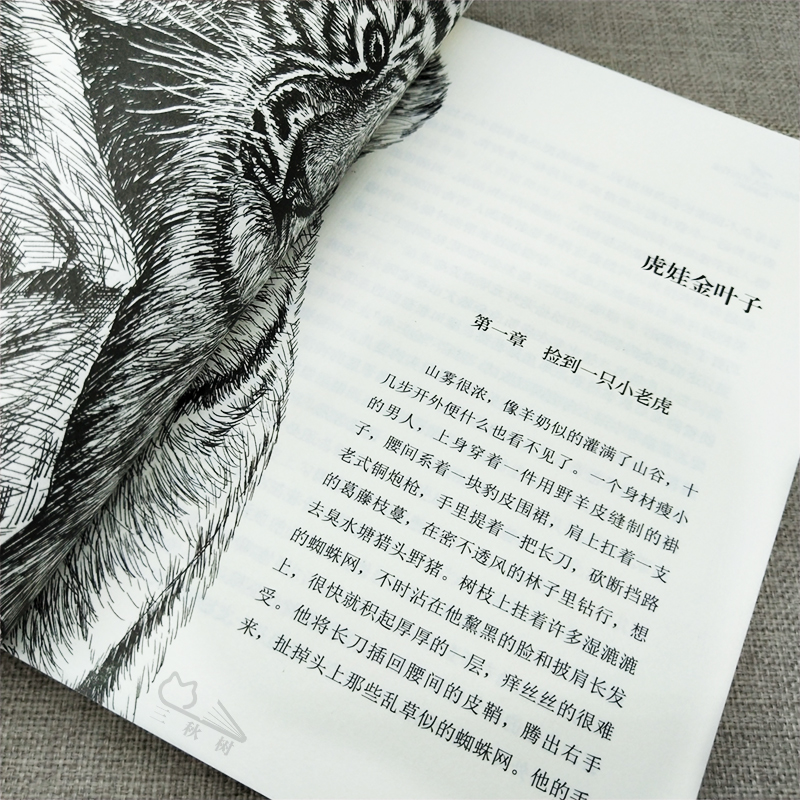 虎娃金叶子
第一章 捡到一只小老虎
山雾很浓，像羊奶似的灌满了山谷，十
几步开外便什么也看不见了。一个身材瘦小
的男人，上身穿着一件用野羊皮缝制的褂
子，腰间系着一块豹皮围裙，肩上扛着一支
老式铜炮枪，手里提着一把长刀，砍断挡路
的葛藤枝蔓，在密不透风的林子里钻行，想
去臭水塘猎头野猪。树枝上挂着许多湿漉漉
的蜘蛛网，不时沾在他黧黑的脸和披肩长发
上，很快就积起厚厚的一层，痒丝丝的很难
受。他将长刀插回腰间的皮鞘，腾出右手
来，扯掉头上那些乱草似的蜘蛛网。他的手
三秋树